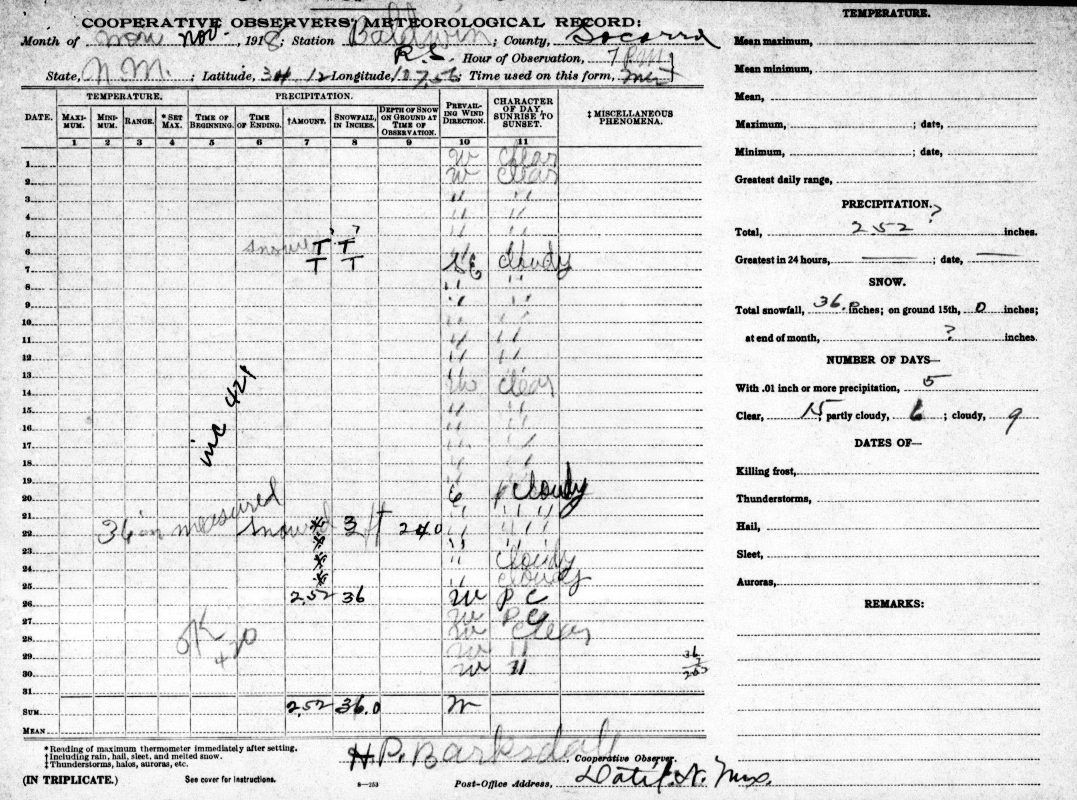 COOPERATIVE OBSERVERS' METEOROLOGICAL RECORD:
Month of Nov., 1918; Station Baldwin; County, Socorro
R.S. Hour of Observation, 7 PM
State, N. M.; Latitude, 34 12 Longitude, 107.56; Time used on this form,
TEMPERATURE. PRECIPITATION.
DATE. MAXI-MUM. MINI-MUM. RANGE. *SET MAX. TIME OF BEGINNING. TIME OF ENDING. †AMOUNT. SNOWFALL, IN INCHES. DEPTH OF SNOW ON GROUND AT TIME OF OBSERVATION. PREVAIL-ING WIND DIRECTION. CHARACTER OF DAY, SUNRISE TO SUNSET. ‡ MISCELLANEOUS PHENOMENA.
1 2 3 4 5 6 7 8 9 10 11
1. W Clear
2. W Clear
3. " "
4. " "
5. " "
6. T T " "
7. T T SE Cloudy
8. " "
9. " "
10. " "
11. " "
12. " "
13. W Clear
14. " "
15. " "
16. " "
17. " "
18. " "
19. Cloudy
20. " "
21. 36 in measured
22. snowed 3 ft 240 " "
23. " Cloudy
24. " Cloudy
25. 2.52 36 W P C
26. W P C
27. W Clear
28. W "
29. W "
30.
31.
inc 421
OK 420
SUM. 2.52 36.0 W
MEAN
*Reading of maximum thermometer immediately after setting.
†Including rain, hail, sleet, and melted snow.
‡Thunderstorms, halos, auroras, etc.
(IN TRIPLICATE.) See cover for instructions. 8—253
H P. Barksdall, Cooperative Observer.
Post-Office Address, Datil, N. Mex.
TEMPERATURE.
Mean maximum,
Mean minimum,
Mean,
Maximum, ; date,
Minimum, ; date,
Greatest daily range,
PRECIPITATION.
Total, 2.52 ? inches.
Greatest in 24 hours, ; date,
SNOW.
Total snowfall, 36.0 inches; on ground 15th, 0 inches;
at end of month, ? inches.
NUMBER OF DAYS—
With .01 inch or more precipitation, 5
Clear, 15; partly cloudy, 6; cloudy, 9
DATES OF—
Killing frost,
Thunderstorms,
Hail,
Sleet,
Auroras,
REMARKS: